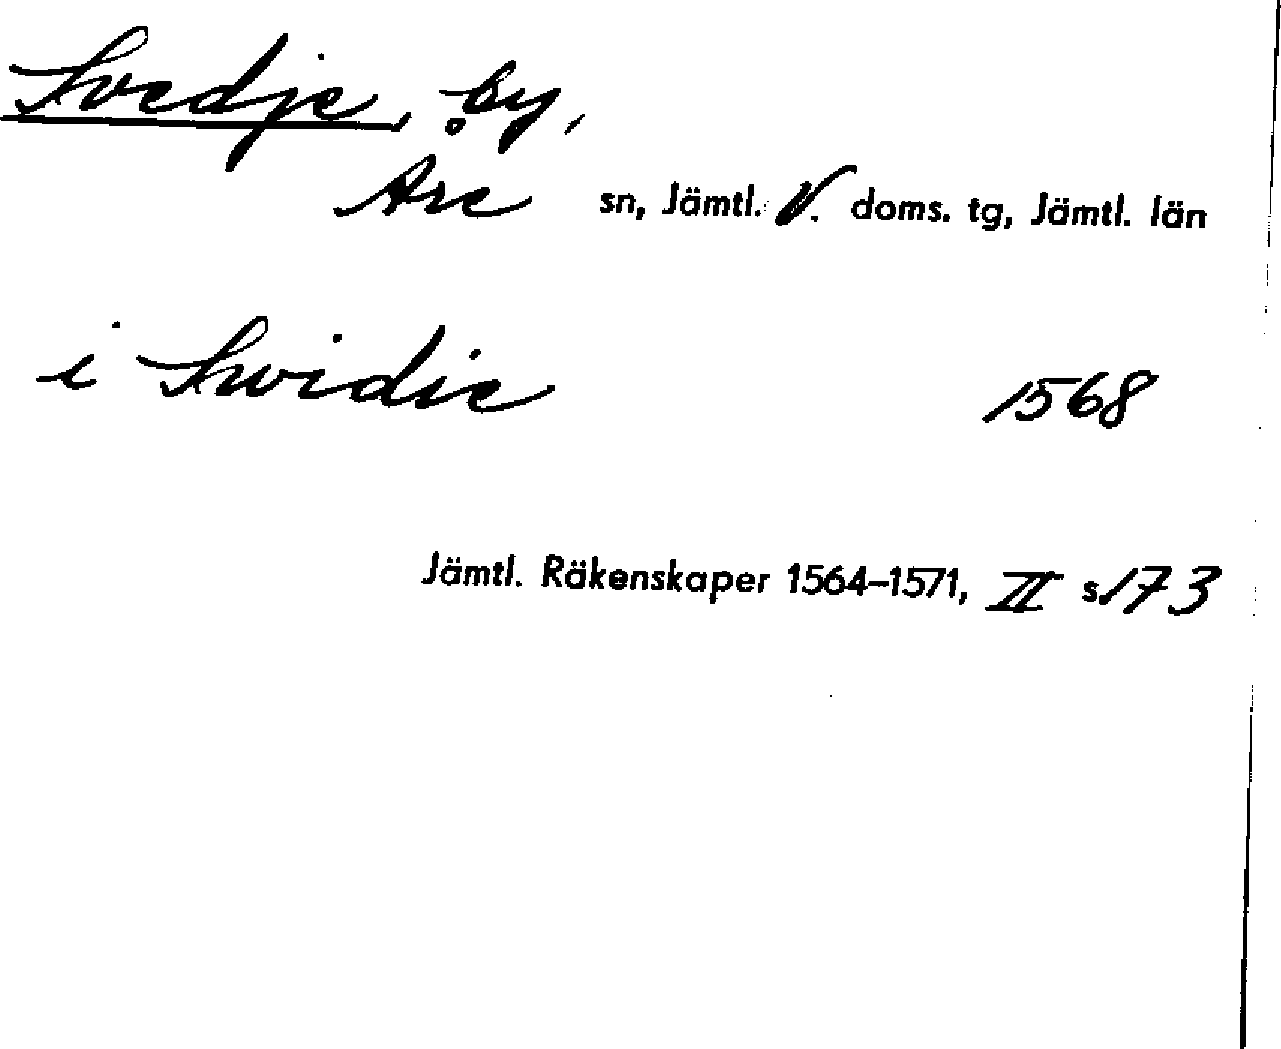 Svedje, by,
Åre sn, Jämtl. V. doms. tg, Jämtl. län
i Swidie 1568
Jämtl. Räkenskaper 1564–1571, II s. 173